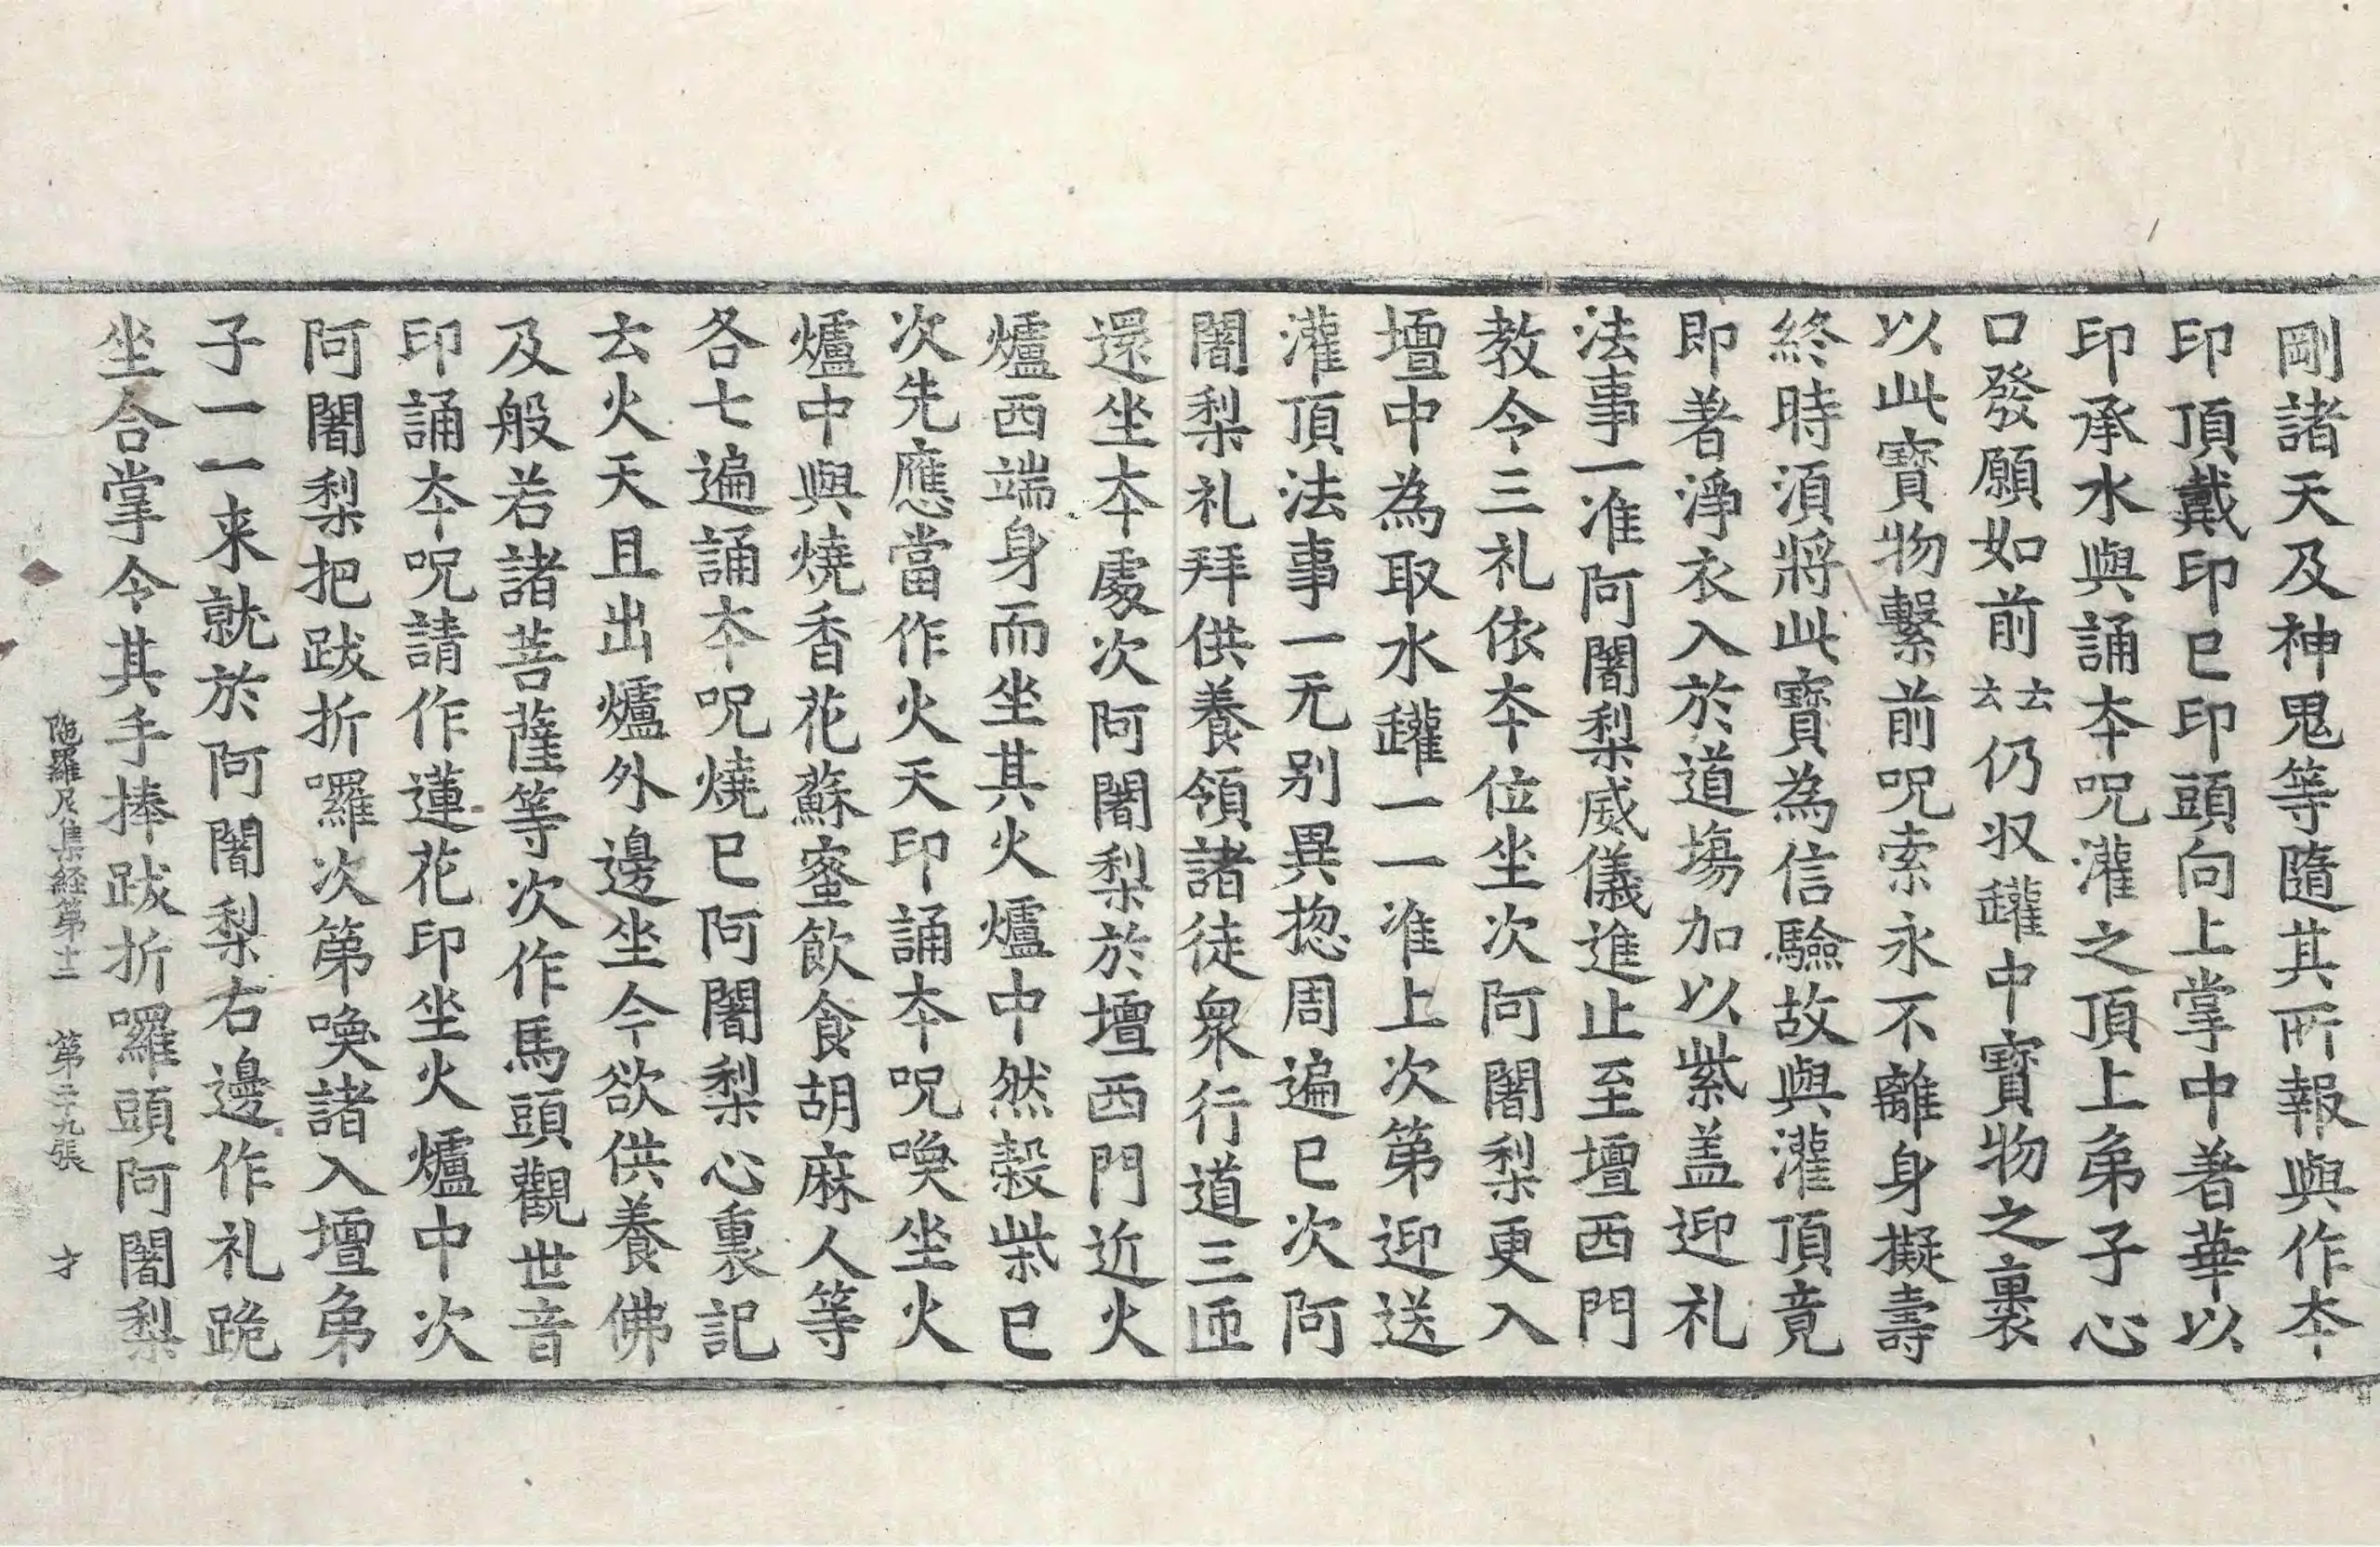 剛諸天及神鬼等隨其所報與作夲
印頂戴印已印頭向上掌中著華以
印承水與誦夲呪灌之頂上弟子心
口發願如前云云仍収罐中寶物之裹
以此寶物繫前呪索永不離身擬壽
終時須將此寶為信驗故與灌頂竟
即著淨衣入於道場加以紫盖迎礼
法事一准阿闍梨威儀進止至壇西門
教令三礼依夲位坐次阿闍梨更入
壇中為取水罐一一准上次第迎送
灌頂法事一无别異揔周遍已次阿
闍梨礼拜供養領諸徒衆行道三匝
還坐夲處次阿闍梨於壇西門近火
爐西端身而坐其火爐中然榖柴已
次先應當作火天印誦夲呪喚坐火
爐中與燒香花蘇蜜飲食胡麻人等
各七遍誦夲呪燒已阿闍梨心裏記
云火天且出爐外邊坐今欲供養佛
及般若諸菩薩等次作馬頭觀世音
印誦夲呪請作蓮花印坐火爐中次
阿闍梨把跋折囉次第喚諸入壇弟
子一一来就於阿闍梨右邊作礼跪
坐合掌令其手捧跋折囉頭阿闍梨
陁羅尼集経第十二 第二十九張 才